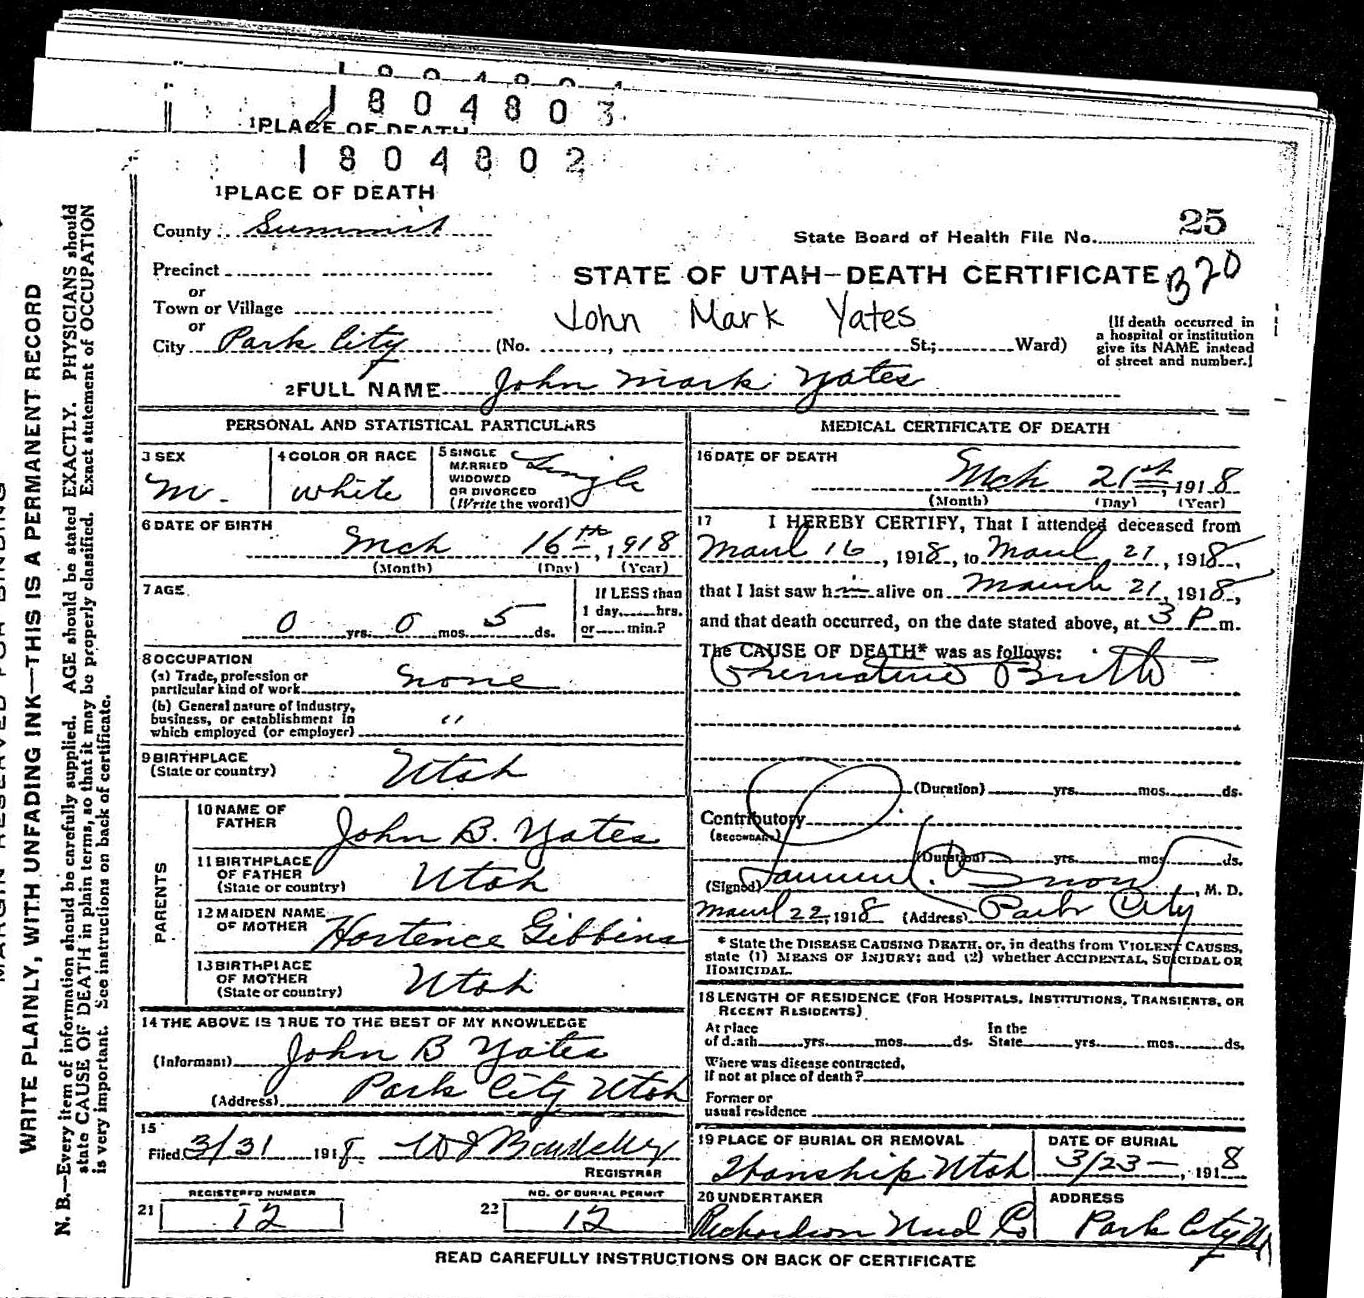 1804803
1PLACE OF DEATH
1804802
1PLACE OF DEATH
County Summit
25
State Board of Health File No.
Precinct
STATE OF UTAH—DEATH CERTIFICATE B20
or
Town or Village
John Mark Yates
or
City Park City (No. , St.; Ward)
(If death occurred in
a hospital or institution
give its NAME instead
of street and number.)
2 FULL NAME John Mark Yates
PERSONAL AND STATISTICAL PARTICULARS
3 SEX
M.
4 COLOR OR RACE
White
5 SINGLE
MARRIED
WIDOWED
OR DIVORCED
(Write the word)
Single
6 DATE OF BIRTH
Mch 16th, 1918
(Month) (Day) (Year)
7 AGE
0 yrs. 0 mos. 5 ds.
If LESS than
1 day, hrs.
or min.?
8 OCCUPATION
(a) Trade, profession or
particular kind of work None
(b) General nature of industry,
business, or establishment in
which employed (or employer) "
9 BIRTHPLACE
(State or country) Utah
PARENTS
10 NAME OF
FATHER John B. Yates
11 BIRTHPLACE
OF FATHER
(State or country) Utah
12 MAIDEN NAME
OF MOTHER Hortence Gibbins
13 BIRTHPLACE
OF MOTHER
(State or country) Utah
14 THE ABOVE IS TRUE TO THE BEST OF MY KNOWLEDGE
(Informant) John B Yates
(Address) Park City Utah
15
Filed 3/31 1918
REGISTRAR
REGISTERED NUMBER
21 12
NO. OF BURIAL PERMIT
22 12
MEDICAL CERTIFICATE OF DEATH
16 DATE OF DEATH
Mch 21st, 1918
(Month) (Day) (Year)
17 I HEREBY CERTIFY, That I attended deceased from
March 16, 1918, to March 21, 1918,
that I last saw him alive on March 21, 1918,
and that death occurred, on the date stated above, at 3 P m.
The CAUSE OF DEATH* was as follows:
Premature Birth
(Duration) yrs. mos. ds.
Contributory
(SECONDARY)
(Duration) yrs. mos. ds.
(Signed) Snow, M. D.
March 22, 1918 (Address) Park City
* State the DISEASE CAUSING DEATH, or, in deaths from VIOLENT CAUSES,
state (1) MEANS OF INJURY; and (2) whether ACCIDENTAL, SUICIDAL OR
HOMICIDAL.
18 LENGTH OF RESIDENCE (FOR HOSPITALS, INSTITUTIONS, TRANSIENTS, OR
RECENT RESIDENTS)
At place
of death yrs. mos. ds.
In the
State yrs. mos. ds.
Where was disease contracted,
If not at place of death?
Former or
usual residence
19 PLACE OF BURIAL OR REMOVAL
Utah
DATE OF BURIAL
3/23—, 1918
20 UNDERTAKER
Richardson Co
ADDRESS
Park City
READ CAREFULLY INSTRUCTIONS ON BACK OF CERTIFICATE
WRITE PLAINLY, WITH UNFADING INK—THIS IS A PERMANENT RECORD
N. B.—Every item of information should be carefully supplied. AGE should be stated EXACTLY. PHYSICIANS should
state CAUSE OF DEATH in plain terms, so that it may be properly classified. Exact statement of OCCUPATION
is very important. See instructions on back of certificate.